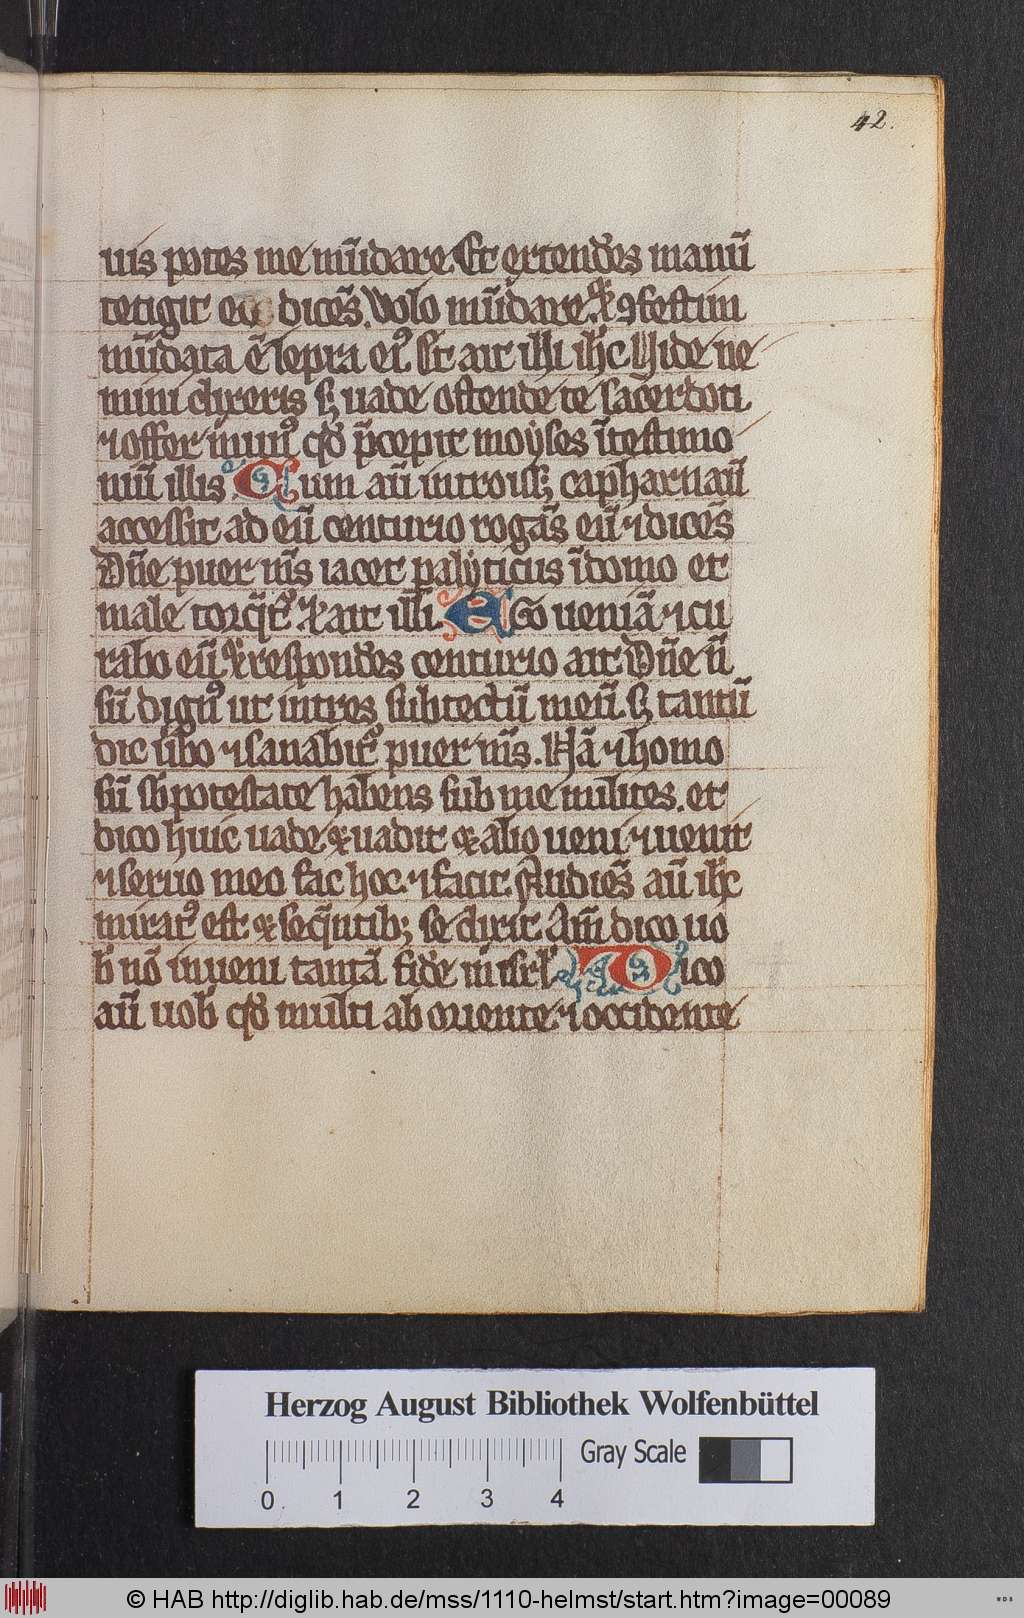 42.
uis potes me mūdare. Et extendēs manū
tetigit eū dicēs. Volo mūdare. & ꝯfestim
mūdata ē lepra eiꝰ. Et ait illi ih̄c Uide ne
mini dixeris sꝫ uade ostende te sacerdoti
⁊ offer munꝰ qd̄ p̄cepit moÿses ītestimo
niū illis Cum aū introissꝫ capharnaū
accessit ad eū centurio rogās eū ⁊ dicēs
Dn̄e puer m̄s iacet palÿticus ī domo et
male torq̄t᷑ & ait illi. EGo ueniā ⁊ cu
rabo eū & respondēs centurio ait. Dn̄e n̄
sū dignꝰ ut intres sub tectū meū sꝫ tantū
dic ūbo ⁊ sanabit᷑ puer m̄s. Nā ⁊ homo
sū sb̄ potestate habens sub me milites. et
dico huic uade & uadit & alio ueni ⁊ uenit
⁊ seruo meo fac hoc. ⁊ facit. Audiēs aū ih̄c
mirat᷑ est & seq̄ntibꝫ se dixit Am̄ dico uo
b̄ nō inueni tantā fidē in isrl̄ Dico
aū uob̄ qd̄ multi ab oriente ⁊ occidente
Herzog August Bibliothek Wolfenbüttel
Gray Scale
0 1 2 3 4
© HAB http://diglib.hab.de/mss/1110-helmst/start.htm?image=00089